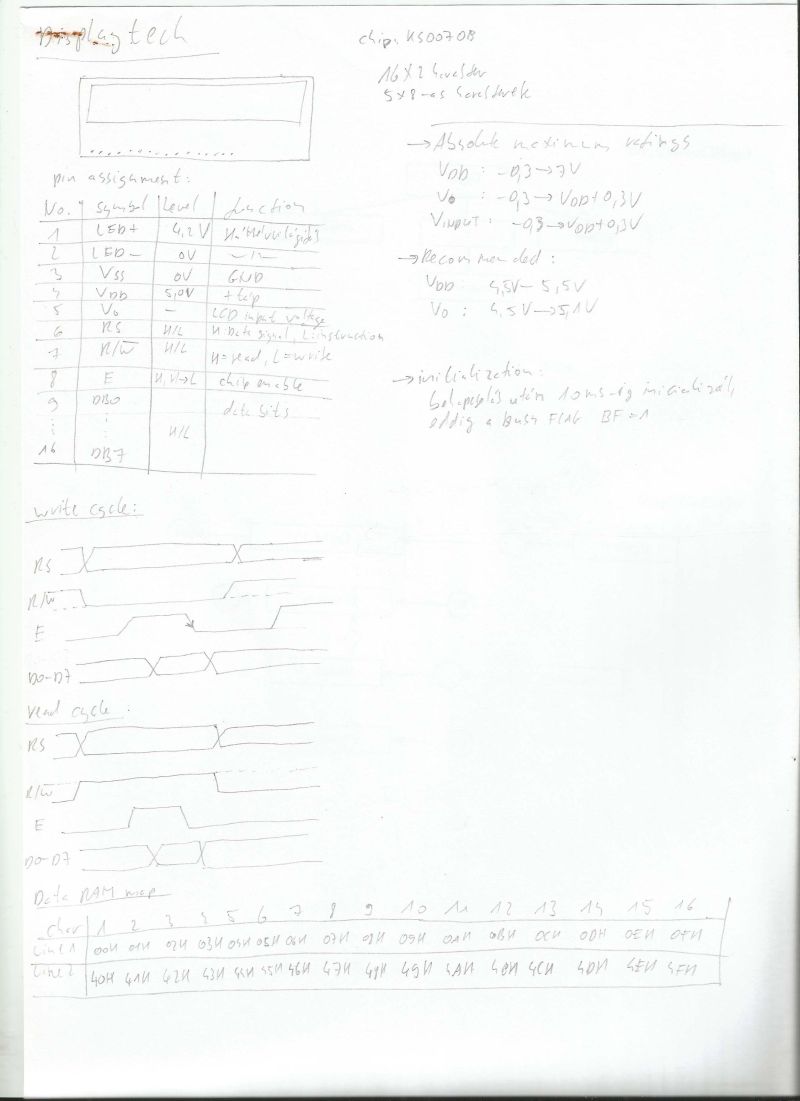 Displaytech
chip: KS0070B
16x2 karakter
5x8-as karakterek
pin assignment:
No. Symbol Level function
1 LED+ 4,2V
2 LED- 0V -II-
3 VSS 0V GND
4 VDD 5,0V +táp
5 V0 - LCD input voltage
6 RS H/L H: Data signal, L: instruction
7 R/W̅ H/L H=read, L=write
8 E H, H→L chip enable
9 DB0 data bits
⋮ ⋮ H/L
16 DB7
→ Absolute maximum ratings
VDD : -0,3→7V
V0 : -0,3→VDD+0,3V
VINPUT : -0,3→VDD+0,3V
→ Recommended:
VDD : 4,5V-5,5V
V0 : 4,5V→5,1V
→ initialization:
bekapcsolás után 10ms-ig inicializál,
addig a Busy FlAG BF=1
write cycle:
RS
R/W̅
E
D0-D7
read cycle:
RS
R/W̅
E
D0-D7
Data RAM map
char 1 2 3 4 5 6 7 8 9 10 11 12 13 14 15 16
Line 1 00H 01H 02H 03H 04H 05H 06H 07H 08H 09H 0AH 0BH 0CH 0DH 0EH 0FH
Line 2 40H 41H 42H 43H 44H 45H 46H 47H 48H 49H 4AH 4BH 4CH 4DH 4EH 4FH